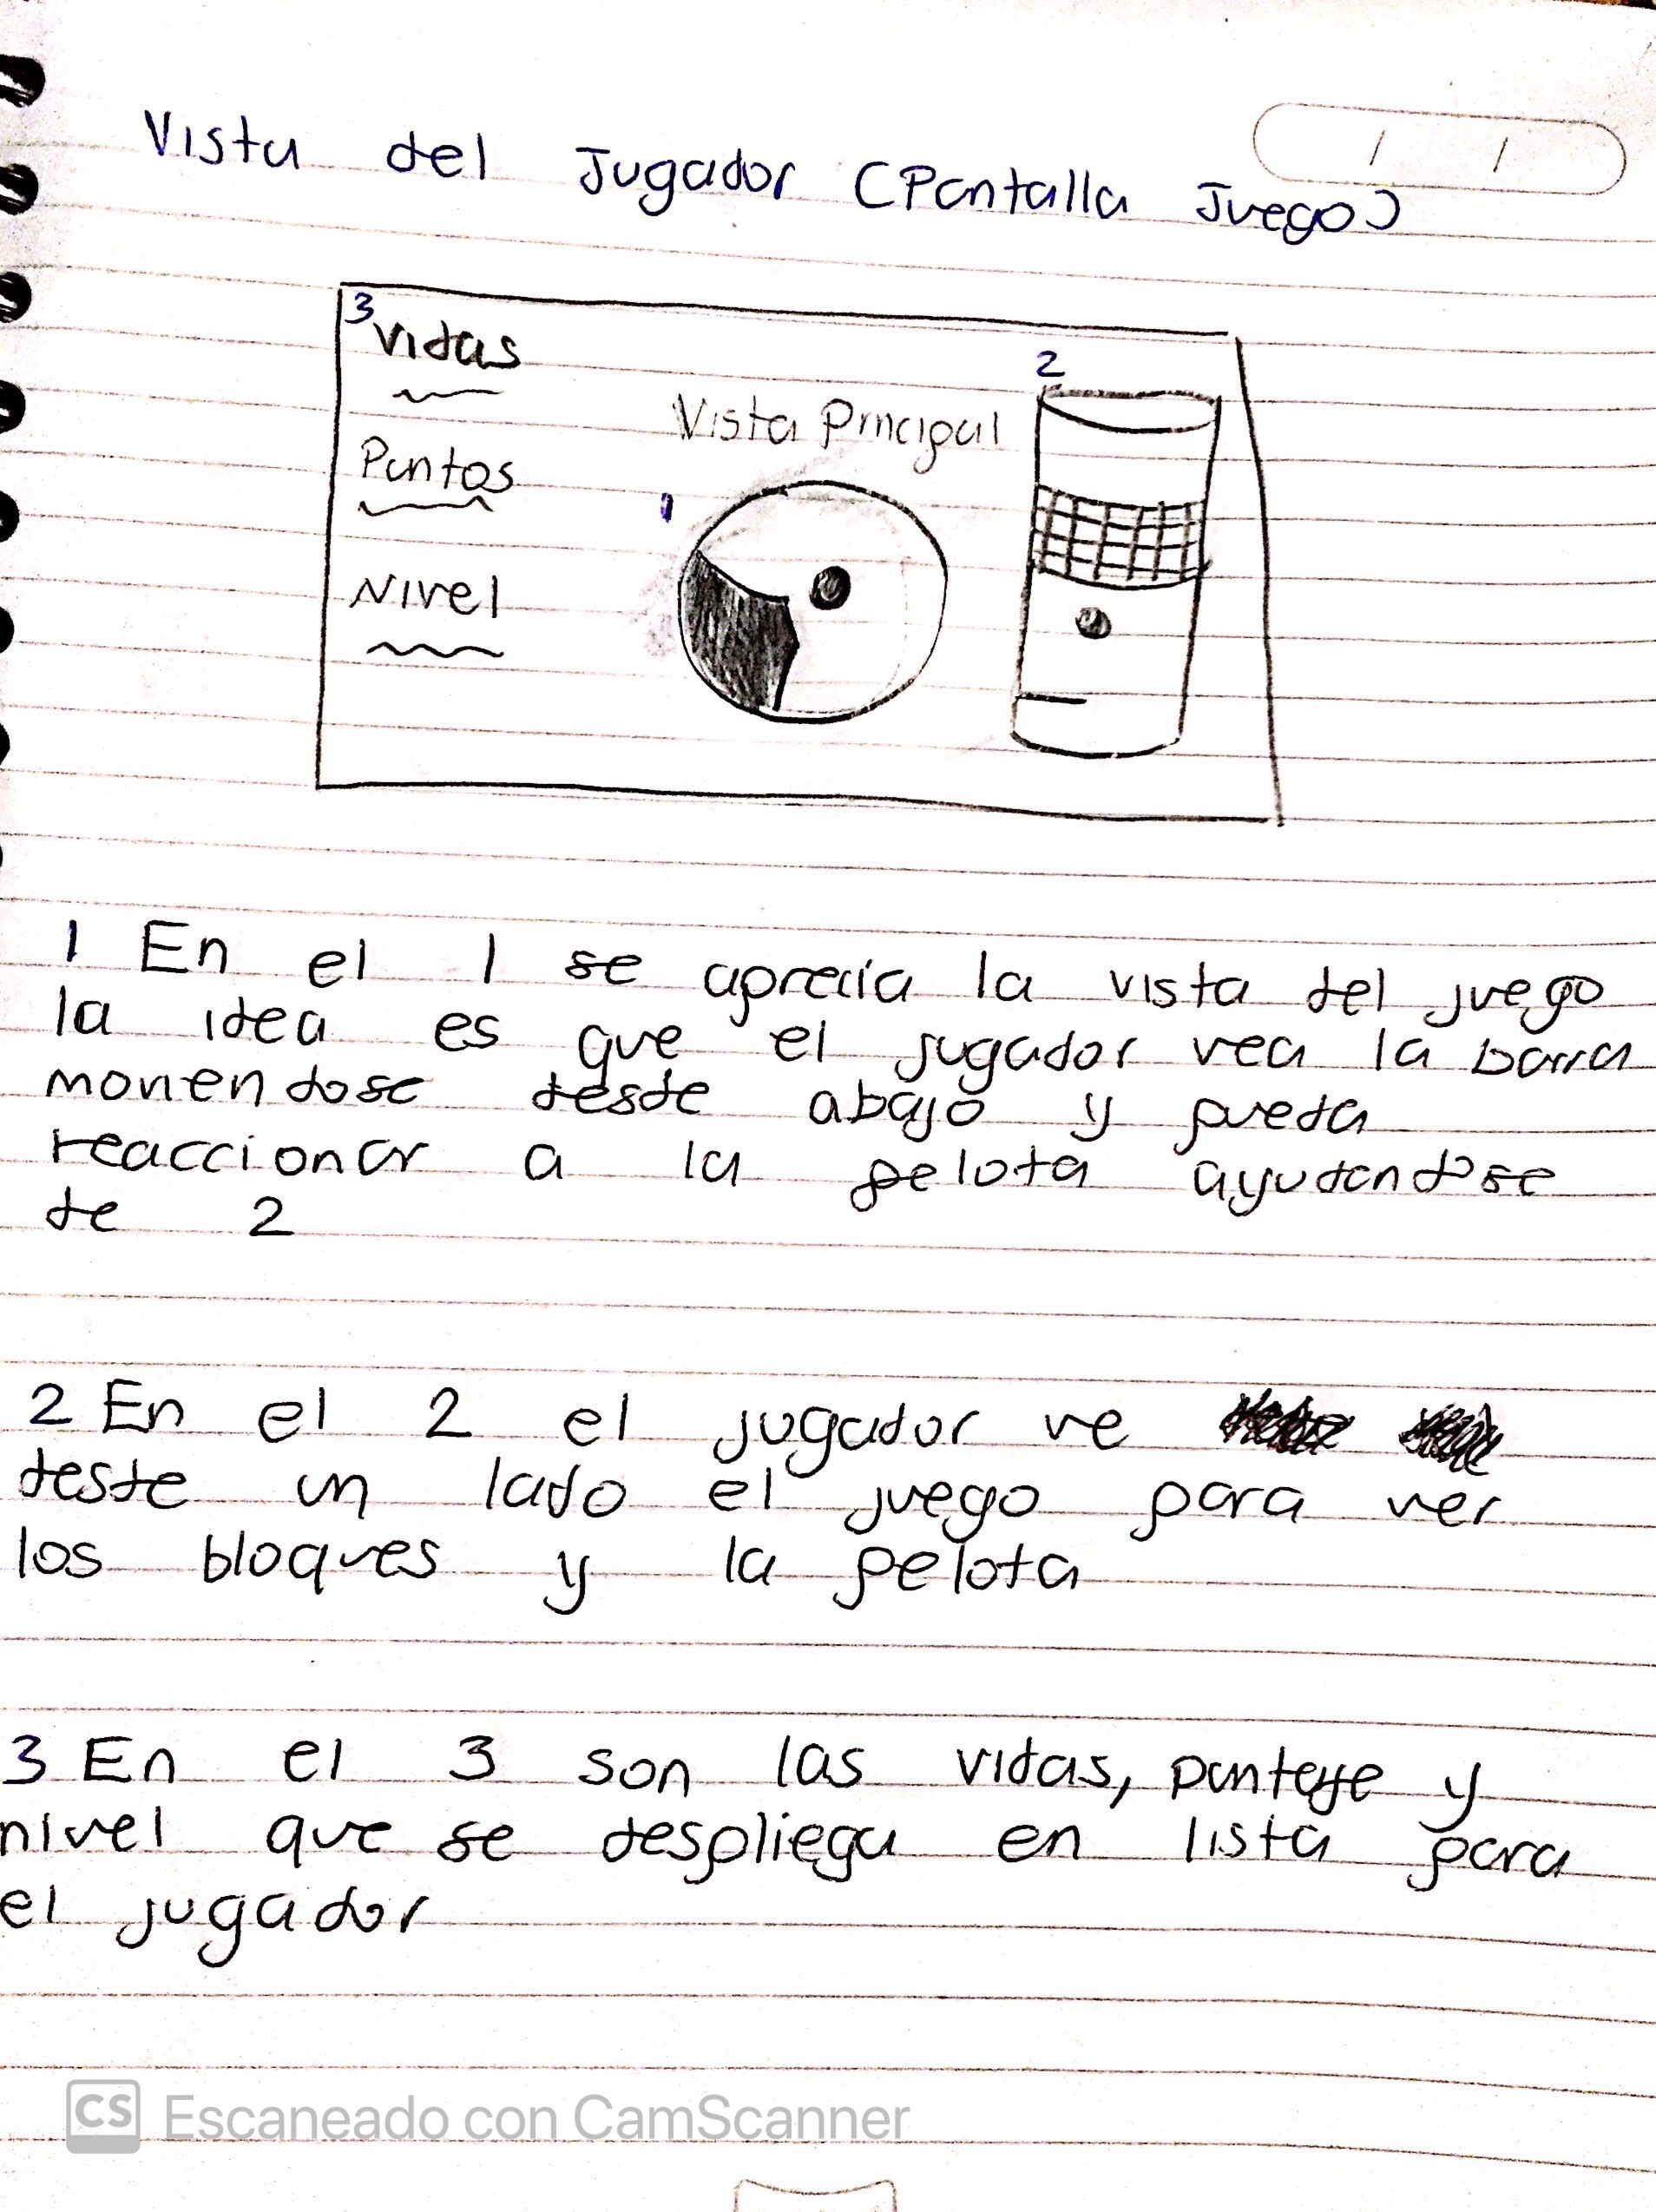 Vista del Jugador (Pantalla Juego)
3
Vidas
2
Vista Principal
Puntos
1
Nivel
1 En el 1 se aprecia la vista del juego
la idea es que el jugador vea la barra
moviendose desde abajo y pueda
reaccionar a la pelota ayudandose
de 2
2 En el 2 el jugador ve
desde un lado el juego para ver
los bloques y la pelota
3 En el 3 son las vidas, punteje y
nivel que se despliega en lista para
el jugador
CS Escaneado con CamScanner